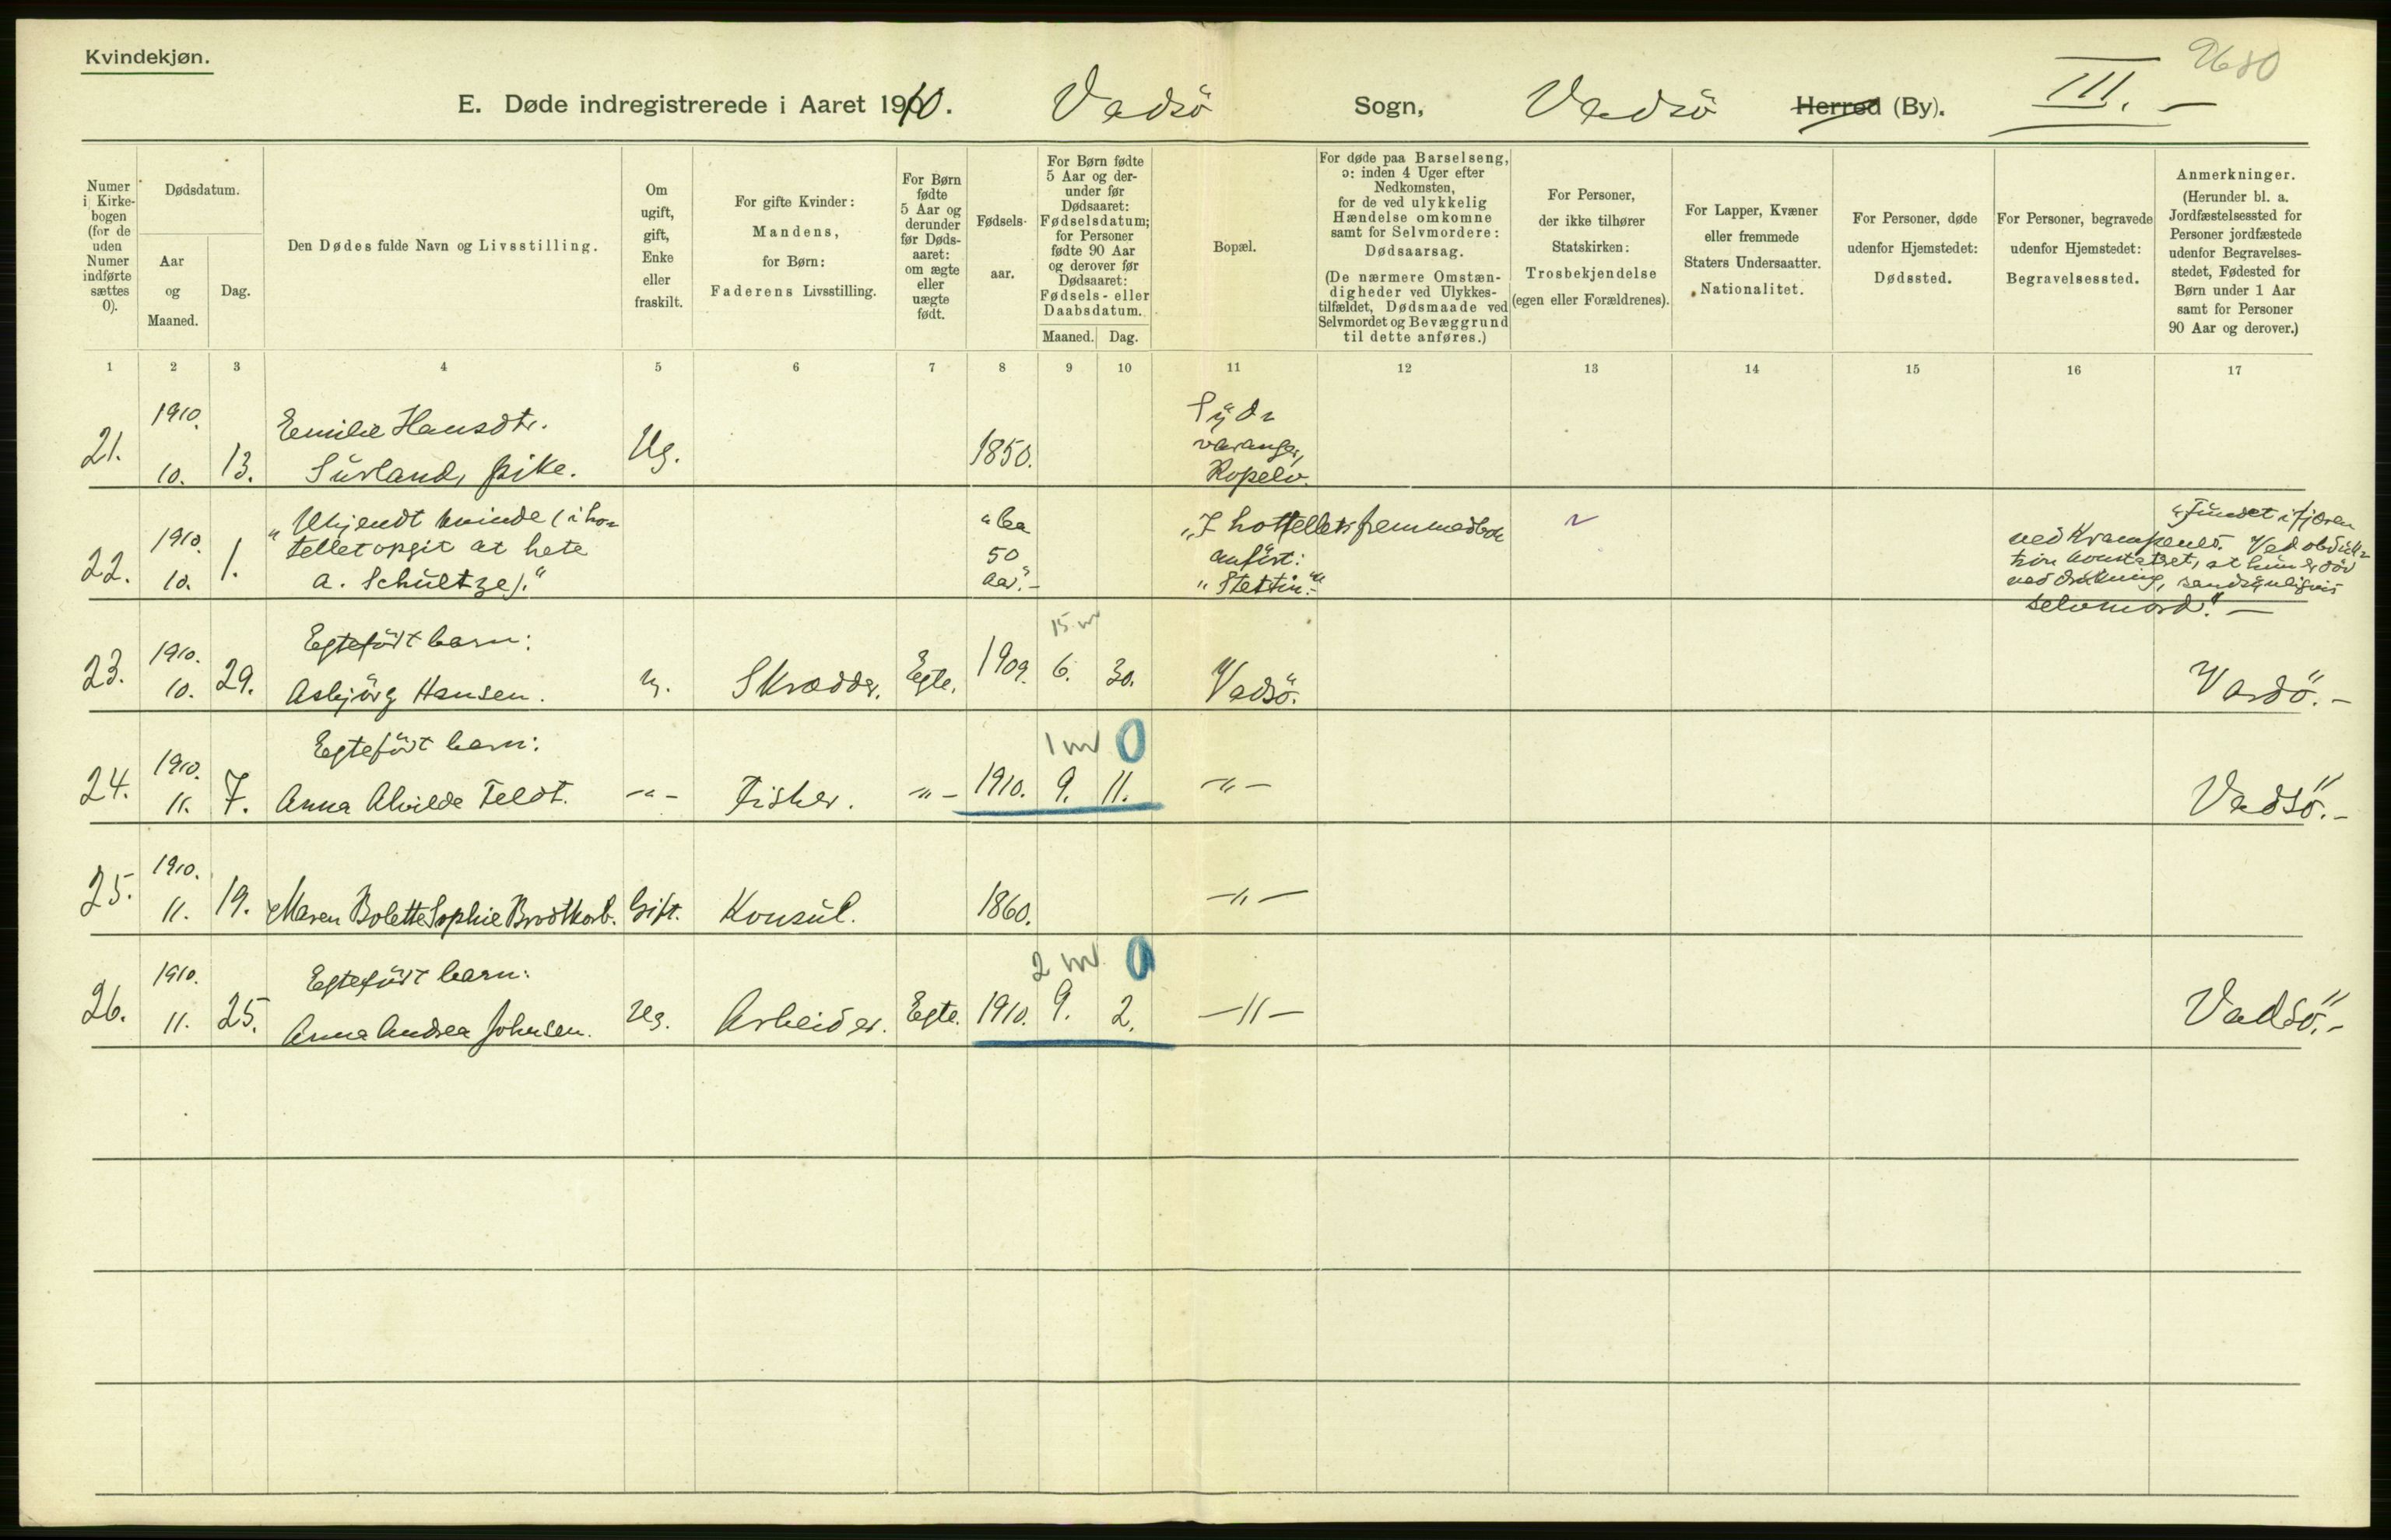 Kvindekjøn.
2680
E. Døde indregistrerede i Aaret 1910. Vadsö Sogn, Vadsö Herred (By). III. –
Numer
i Kirke-
bogen
(for de
uden
Numer
indførte
sættes
0).
Dødsdatum.
Aar
og
Maaned.
Dag.
Den Dødes fulde Navn og Livsstilling.
Om
ugift,
gift,
Enke
eller
fraskilt.
For gifte Kvinder:
Mandens,
for Børn:
Faderens Livsstilling.
For Børn
fødte
5 Aar og
derunder
før Døds-
aaret:
om ægte
eller
uægte
født.
Fødsels-
aar.
For Børn fødte
5 Aar og der-
under før
Dødsaaret:
Fødselsdatum;
for Personer
fødte 90 Aar
og derover før
Dødsaaret:
Fødsels- eller
Daabsdatum.
Maaned. Dag.
Bopæl.
For døde paa Barselseng,
ɔ: inden 4 Uger efter
Nedkomsten,
for de ved ulykkelig
Hændelse omkomne
samt for Selvmordere:
Dødsaarsag.
(De nærmere Omstæn-
digheder ved Ulykkes-
tilfældet, Dødsmaade ved
Selvmordet og Bevæggrund
til dette anføres.)
For Personer,
der ikke tilhører
Statskirken:
Trosbekjendelse
(egen eller Forældrenes).
For Lapper, Kvæner
eller fremmede
Staters Undersaatter.
Nationalitet.
For Personer, døde
udenfor Hjemstedet:
Dødssted.
For Personer, begravede
udenfor Hjemstedet:
Begravelsessted.
Anmerkninger.
(Herunder bl. a.
Jordfæstelsessted for
Personer jordfæstede
udenfor Begravelses-
stedet, Fødested for
Børn under 1 Aar
samt for Personer
90 Aar og derover.)
1 2 3 4 5 6 7 8 9 10 11 12 13 14 15 16 17
21.
1910.
10.
13.
Emilie Hansdtr.
Surland, pike.
Ug.
1850.
Syd-
varanger,
Kopelv.
22.
1910.
10.
1.
"Ukjendt kvinde (i ho-
tellet opgit at hete
A. Schultze)."
"Ca
50
aar". –
"I hotellets fremmedbok
anført:
"Stettin". –
"Fundet i fjæren
ved Krampenes. Ved obduk-
tion konstateret, at hun er död
ved drukning, sandsynligvis
selvmord". –
23.
1910.
10.
29.
Egtefödt barn:
Asbjörg Hansen.
Ug.
Skrædder.
Egte.
1909.
15 m
6.
30.
Vadsö.
Vardö. –
24.
1910.
11.
7.
Egtefödt barn:
Anna Alvilde Feldt.
– " –
Fisker.
– " –
1910.
1 m 0
9.
11.
– " –
Vadsö. –
25.
1910.
11.
19.
Maren Bolette Sophie Brodtkorb.
Gift.
Konsul.
1860.
– " –
26.
1910.
11.
25.
Egtefödt barn:
Anna Andrea Johnsen.
Ug.
Arbeider.
Egte.
1910.
2 m 0
9.
2.
– " –
Vadsö. –